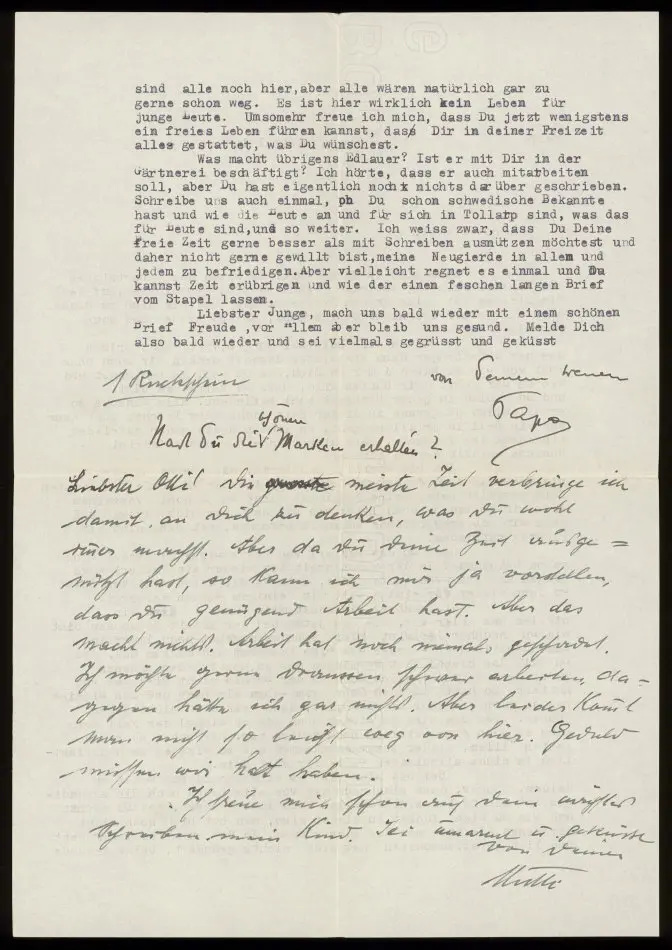 sind alle noch hier,aber alle wären natürlich gar zu
gerne schon weg. Es ist hier wirklich kein Leben für
junge Leute. Umsomehr freue ich mich, dass Du jetzt wenigstens
ein freies Leben führen kannst, dass Dir in deiner Freizeit
alles gestattet, was Du wünschest.
Was macht übrigens Edlauer? Ist er mit Dir in der
Gärtnerei beschäftigt? Ich hörte, dass er auch mitarbeiten
soll, aber Du hast eigentlich noch nichts darüber geschrieben.
Schreibe uns auch einmal, ob Du schon schwedische Bekannte
hast und wie die Leute an und für sich in Tollarp sind, was das
für Leute sind,und so weiter. Ich weiss zwar, dass Du Deine
freie Zeit gerne besser als mit Schreiben ausnützen möchtest und
daher nicht gerne gewillt bist,meine Neugierde in allem und
jedem zu befriedigen.Aber vielleicht regnet es einmal und Du
kannst Zeit erübrigen und wie der einen feschen langen Brief
vom Stapel lassen.
Liebster Junge, mach uns bald wieder mit einem schönen
Brief Freude ,vor allem aber bleib uns gesund. Melde Dich
also bald wieder und sei vielmals gegrüsst und geküsst
1 Rückschein
von Deinem treuen
Papa
schönen
Hast Du die Marken erhalten?
Liebster Otti! Die meiste Zeit verbringe ich
damit, an Dich zu denken, was Du wohl
immer machst. Aber da Du Deine Zeit ausge=
nützt hast, so kann ich mir ja vorstellen,
dass Du genügend Arbeit hast. Aber das
macht nichts. Arbeit hat noch niemals geschadet.
Ich möchte gerne draussen schwer arbeiten, da=
gegen hätte ich gar nichts. Aber leider kommt
man nicht so leicht weg von hier. Geduld
müssen wir halt haben.
Ich freue mich schon auf Dein nächstes
Schreiben mein Kind. Sei umarmt u. geküsst
von Deiner
Mutti